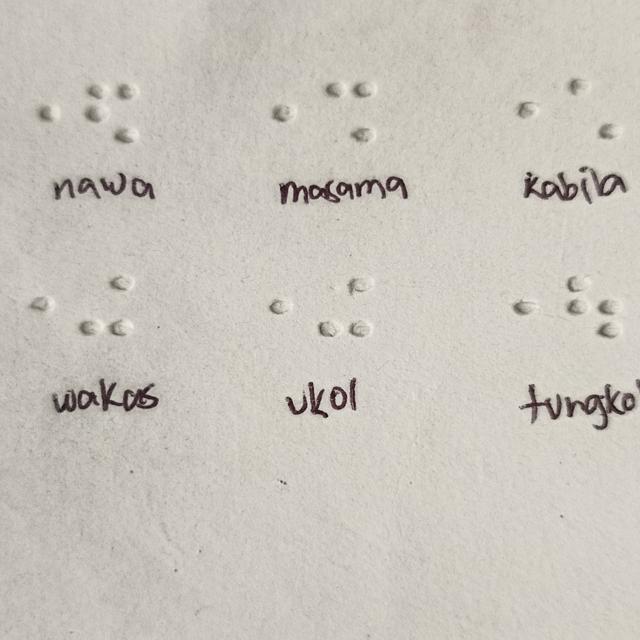 ⠐⠫ ⠐⠩ ⠐⠡
nawa masama kabila
⠐⠬ ⠐⠬ ⠐⠳
wakas ukol